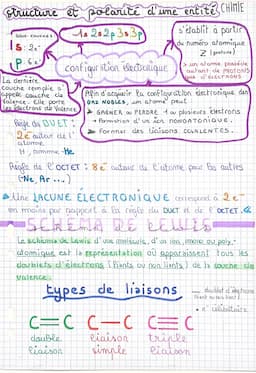 structure et polarité d'une entité CHIMIE
1s 2s 2p 3s 3p
S : 2e-
P : 6e-
s'établit à partir
du numéro atomique
Z (protons)
> un atome possède
autant de PROTONS
que d'ÉLECTRONS
configuration électronique
La dernière
couche remplie s'
appelle couche de
valence. Elle porte
les électrons de valence.
Afin d'acquérir la configuration électronique des
GAZ NOBLES, un atome peut
> GAGNER ou PERDRE 1 ou plusieurs électrons
→ formation d'un ion MONOATOMIQUE.
> Former des liaisons COVALENTES.
Règle du DUET :
2e- autour de l'
atome.
H, comme He
Règle de l'OCTET : 8e- autour de l'atome pour les autres
(Ne, Ar...)
Une LACUNE ÉLECTRONIQUE correspond à 2e-
en moins par rapport à la règle du DUET et de l'OCTET.
SCHÉMA DE LEWIS
Le schéma de Lewis d'une molécule, d'un ion mono ou poly-
atomique est la représentation où apparaissent tous les
doublets d'électrons (liants ou non liants) de la couche de
valence.
types de liaisons
doublet d'électrons
(liant ou non liant)
• e- célibataire
C=C C-C C≡C
double liaison triple
liaison simple liaison